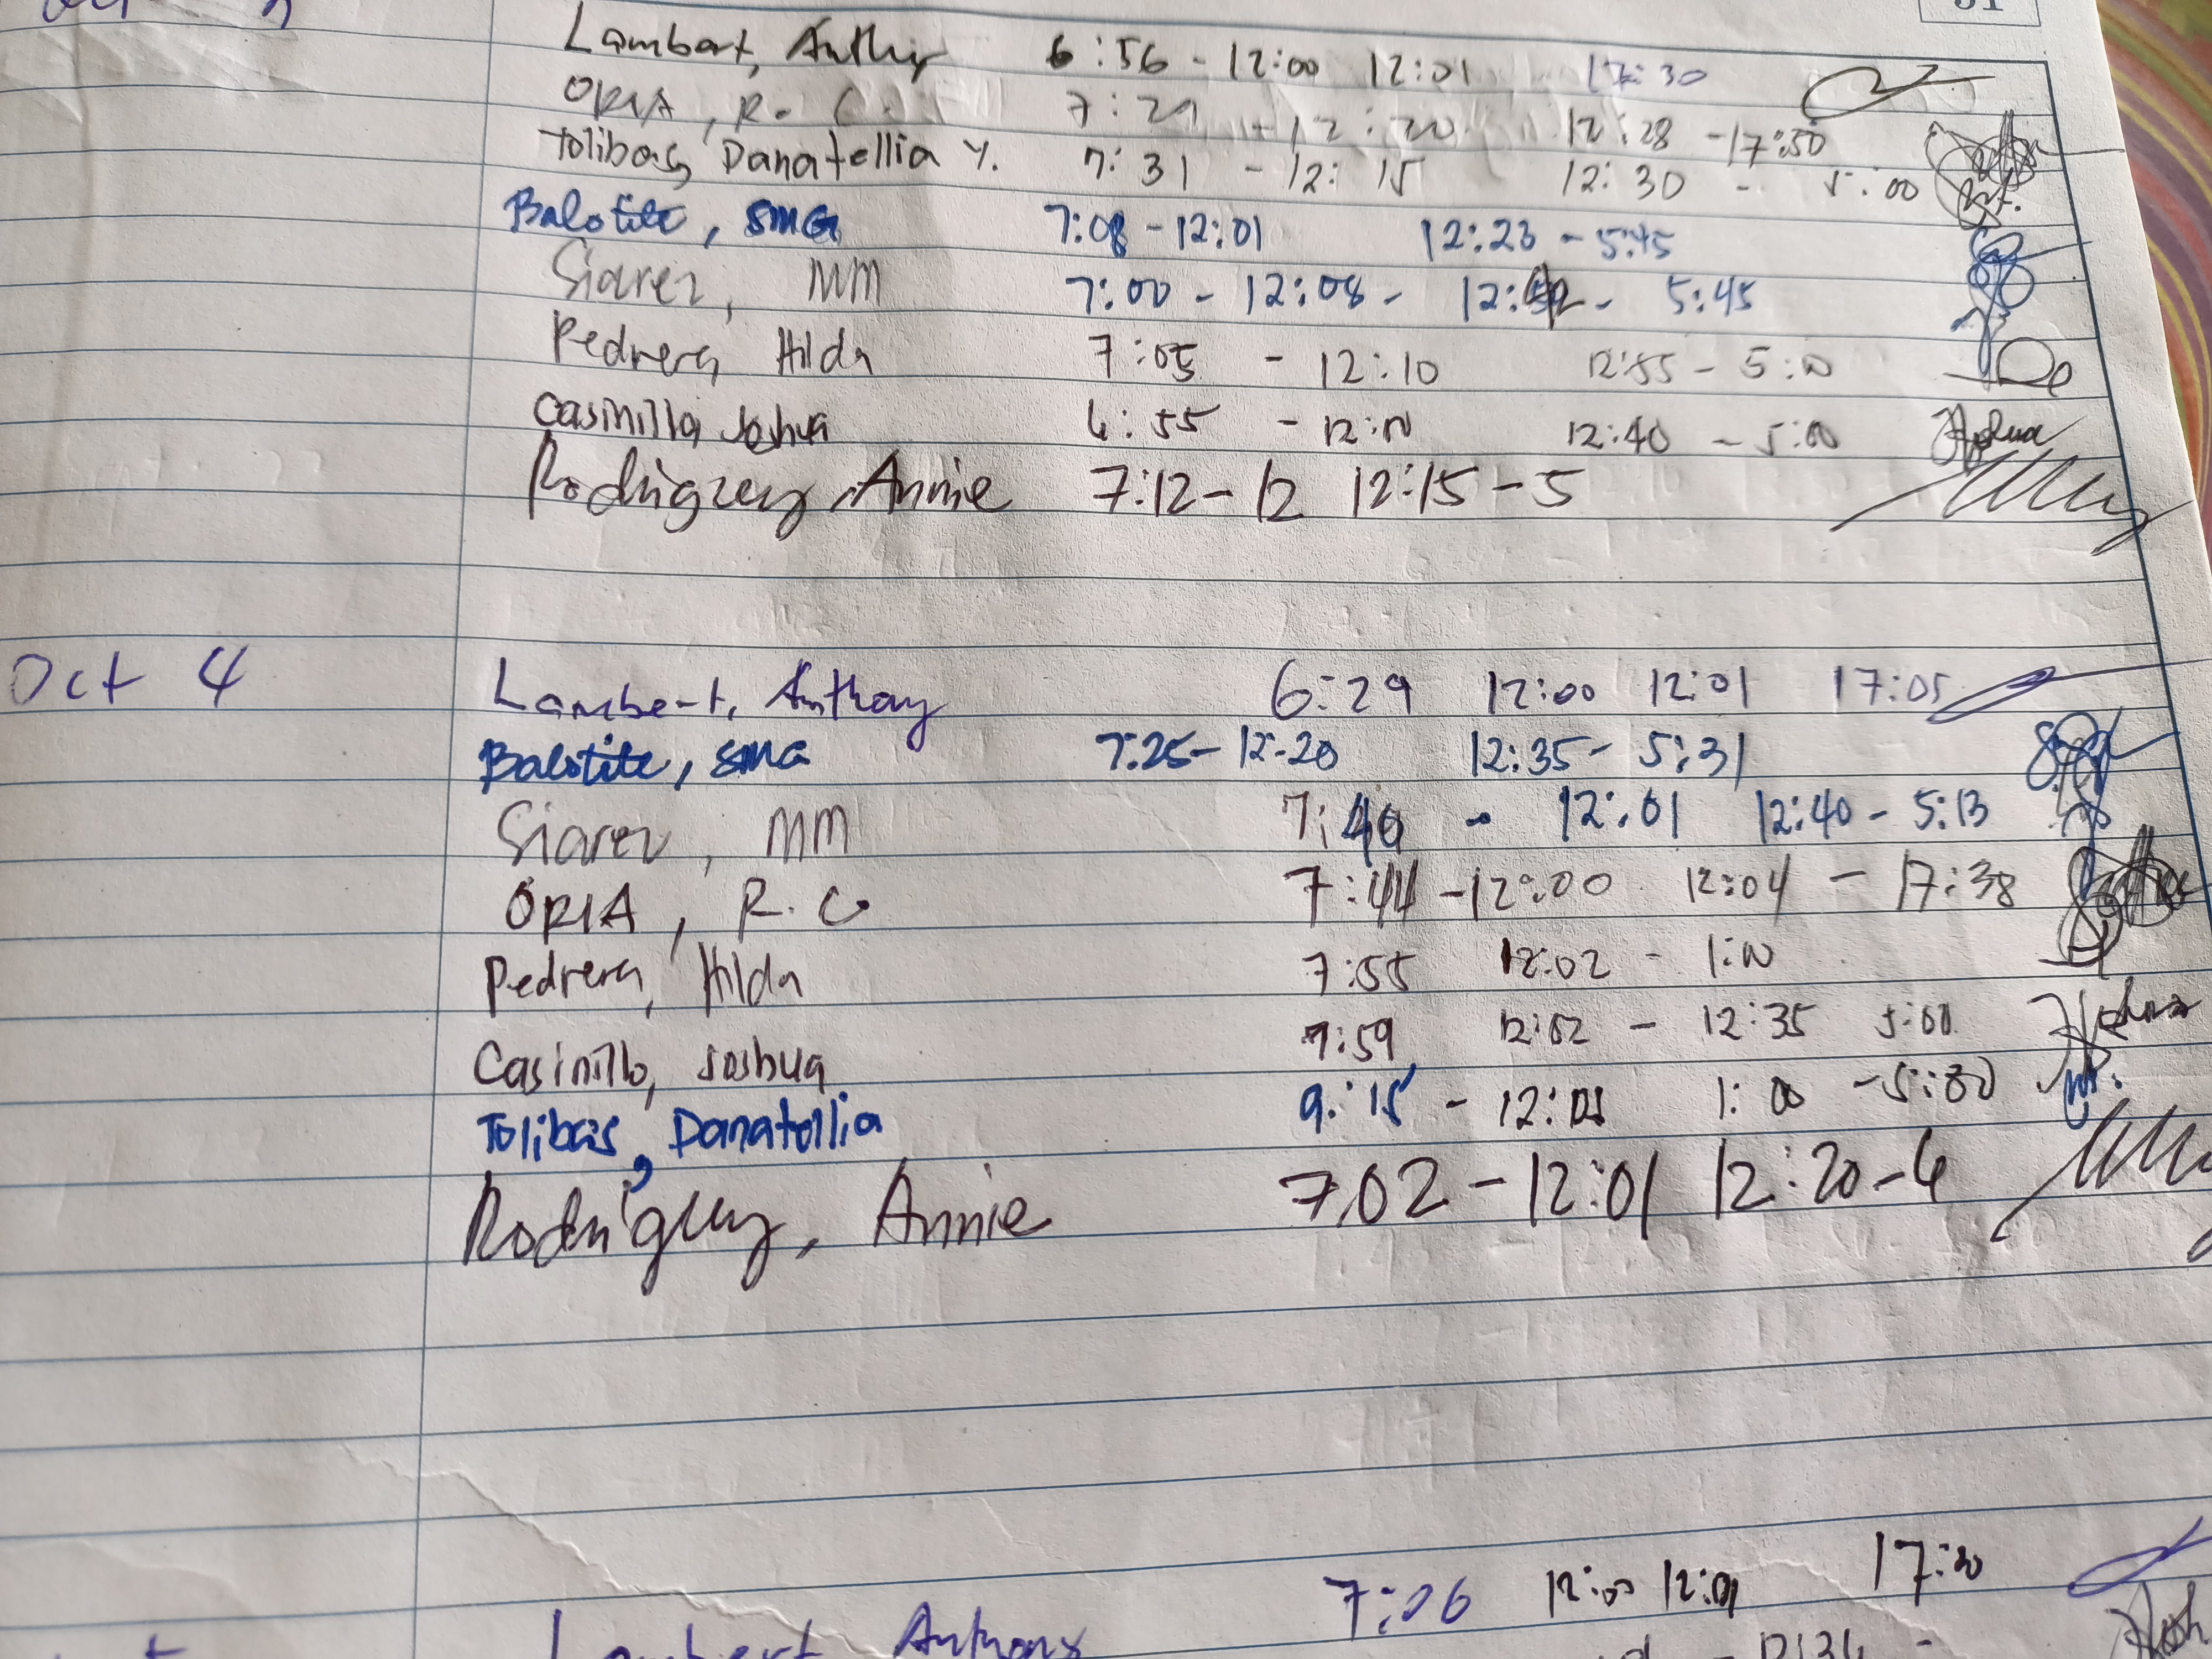 51
Lambert, Anthy 6:56 - 12:00 12:01 17:30
ORIA, R. C. 7:21 - 12:20 12:28 - 17:50
Tolibas, Danatellia Y. 7:31 - 12:15 12:30 - 5:00
Balotite, SMG 7:08 - 12:01 12:23 - 5:45
Siarez, MM 7:00 - 12:08 - 5:45
Pedrera, Hilda 7:05 - 12:10 12:55 - 5:00
Casinillo Joshua 6:55 - 12:00 12:40 - 5:00
Rodriguez, Annie 7:12 - 12 12:15 - 5
Oct 4
Lambert, Anthony 6:29 12:00 12:01 17:05
Balotite, SMG 7:25 - 12:20 12:35 - 5:31
Siarez, MM 7:40 - 12:01 12:40 - 5:13
ORIA, R. C. 7:44 - 12:00 12:04 - 17:38
Pedrera, Hilda 7:55 12:02 - 1:00
Casinillo, Joshua 7:59 12:02 - 12:35 5:00
Tolibas, Danatellia 9:15 - 1:00 - 5:30
Rodriguez, Annie 7:02 - 12:01 12:20 - 6
Lambert Anthony 7:06 12:00 12:01 17:30
12:34 -